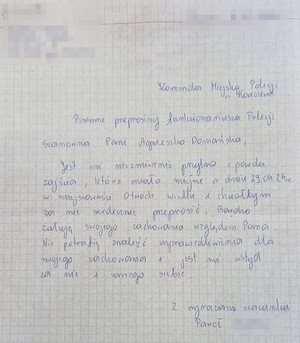 Komenda Miejska Policji
w Koninie
Pisemne przeprosiny funkcjonariusza Policji
Szanowna Pani Agnieszko Domańska,
Jest mi niezmiernie przykro z powodu
zajścia, które miało miejsce w dniu 29.04.24r.
w miejscowości i chciałbym
za nie serdecznie przeprosić. Bardzo
żałuję swojego zachowania względem Pana.
Nie potrafię znaleźć usprawiedliwienia dla
swojego zachowania i jest mi wstyd
za nie i samego siebie.
Z wyrazami szacunku
Paweł